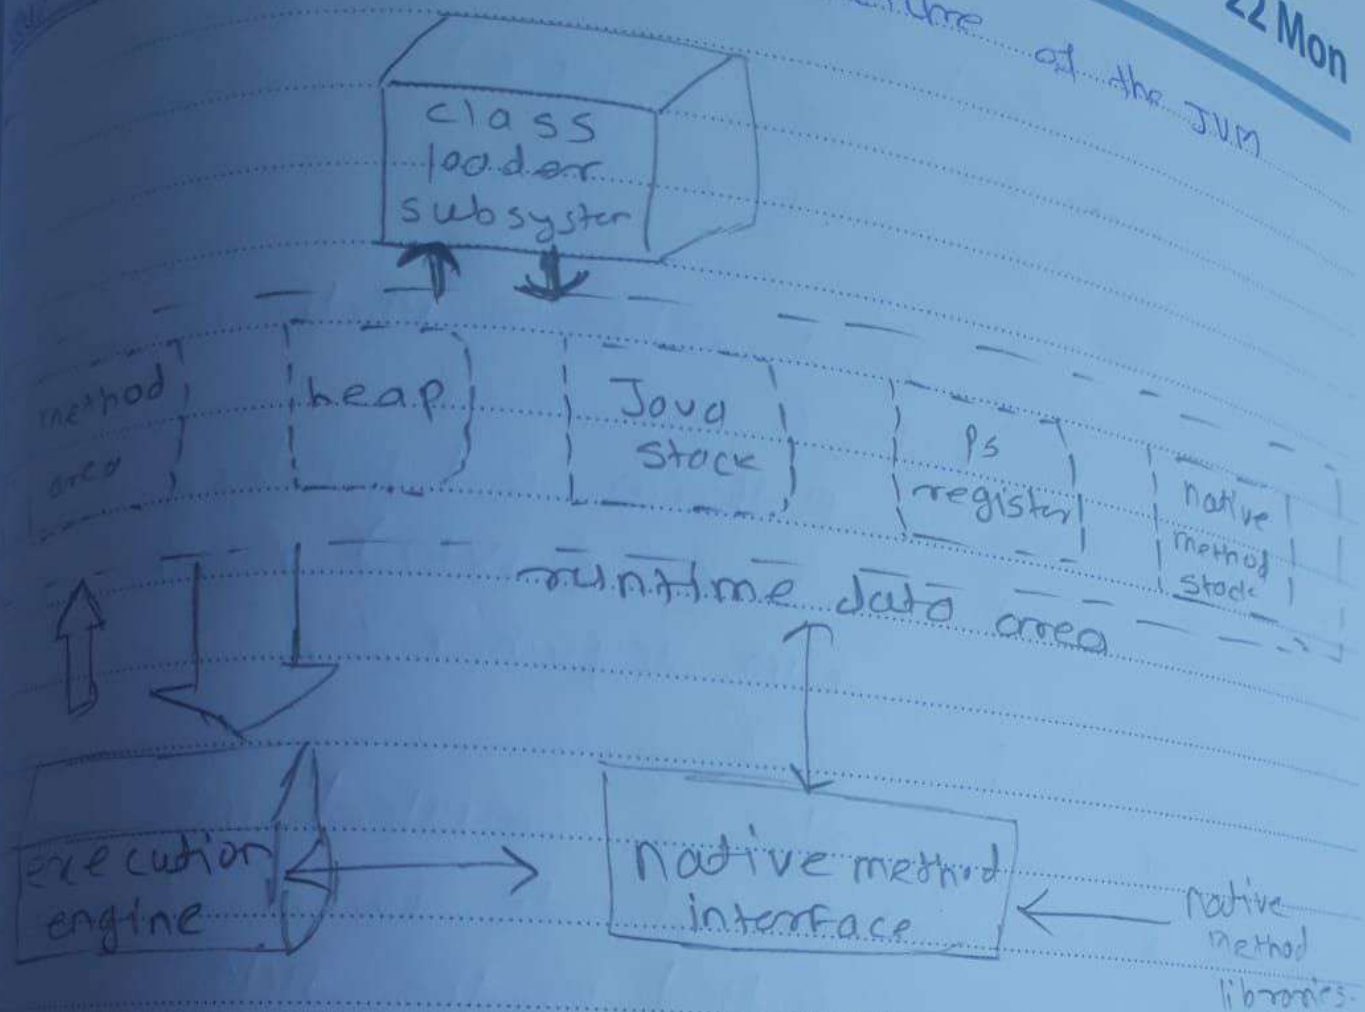 of the JVM
22 Mon
class
loader
subsystem
method
area
heap
Java
Stack
Ps
register
native
method
stack
runtime data area
execution
engine
native method
interface
native
method
libraries.